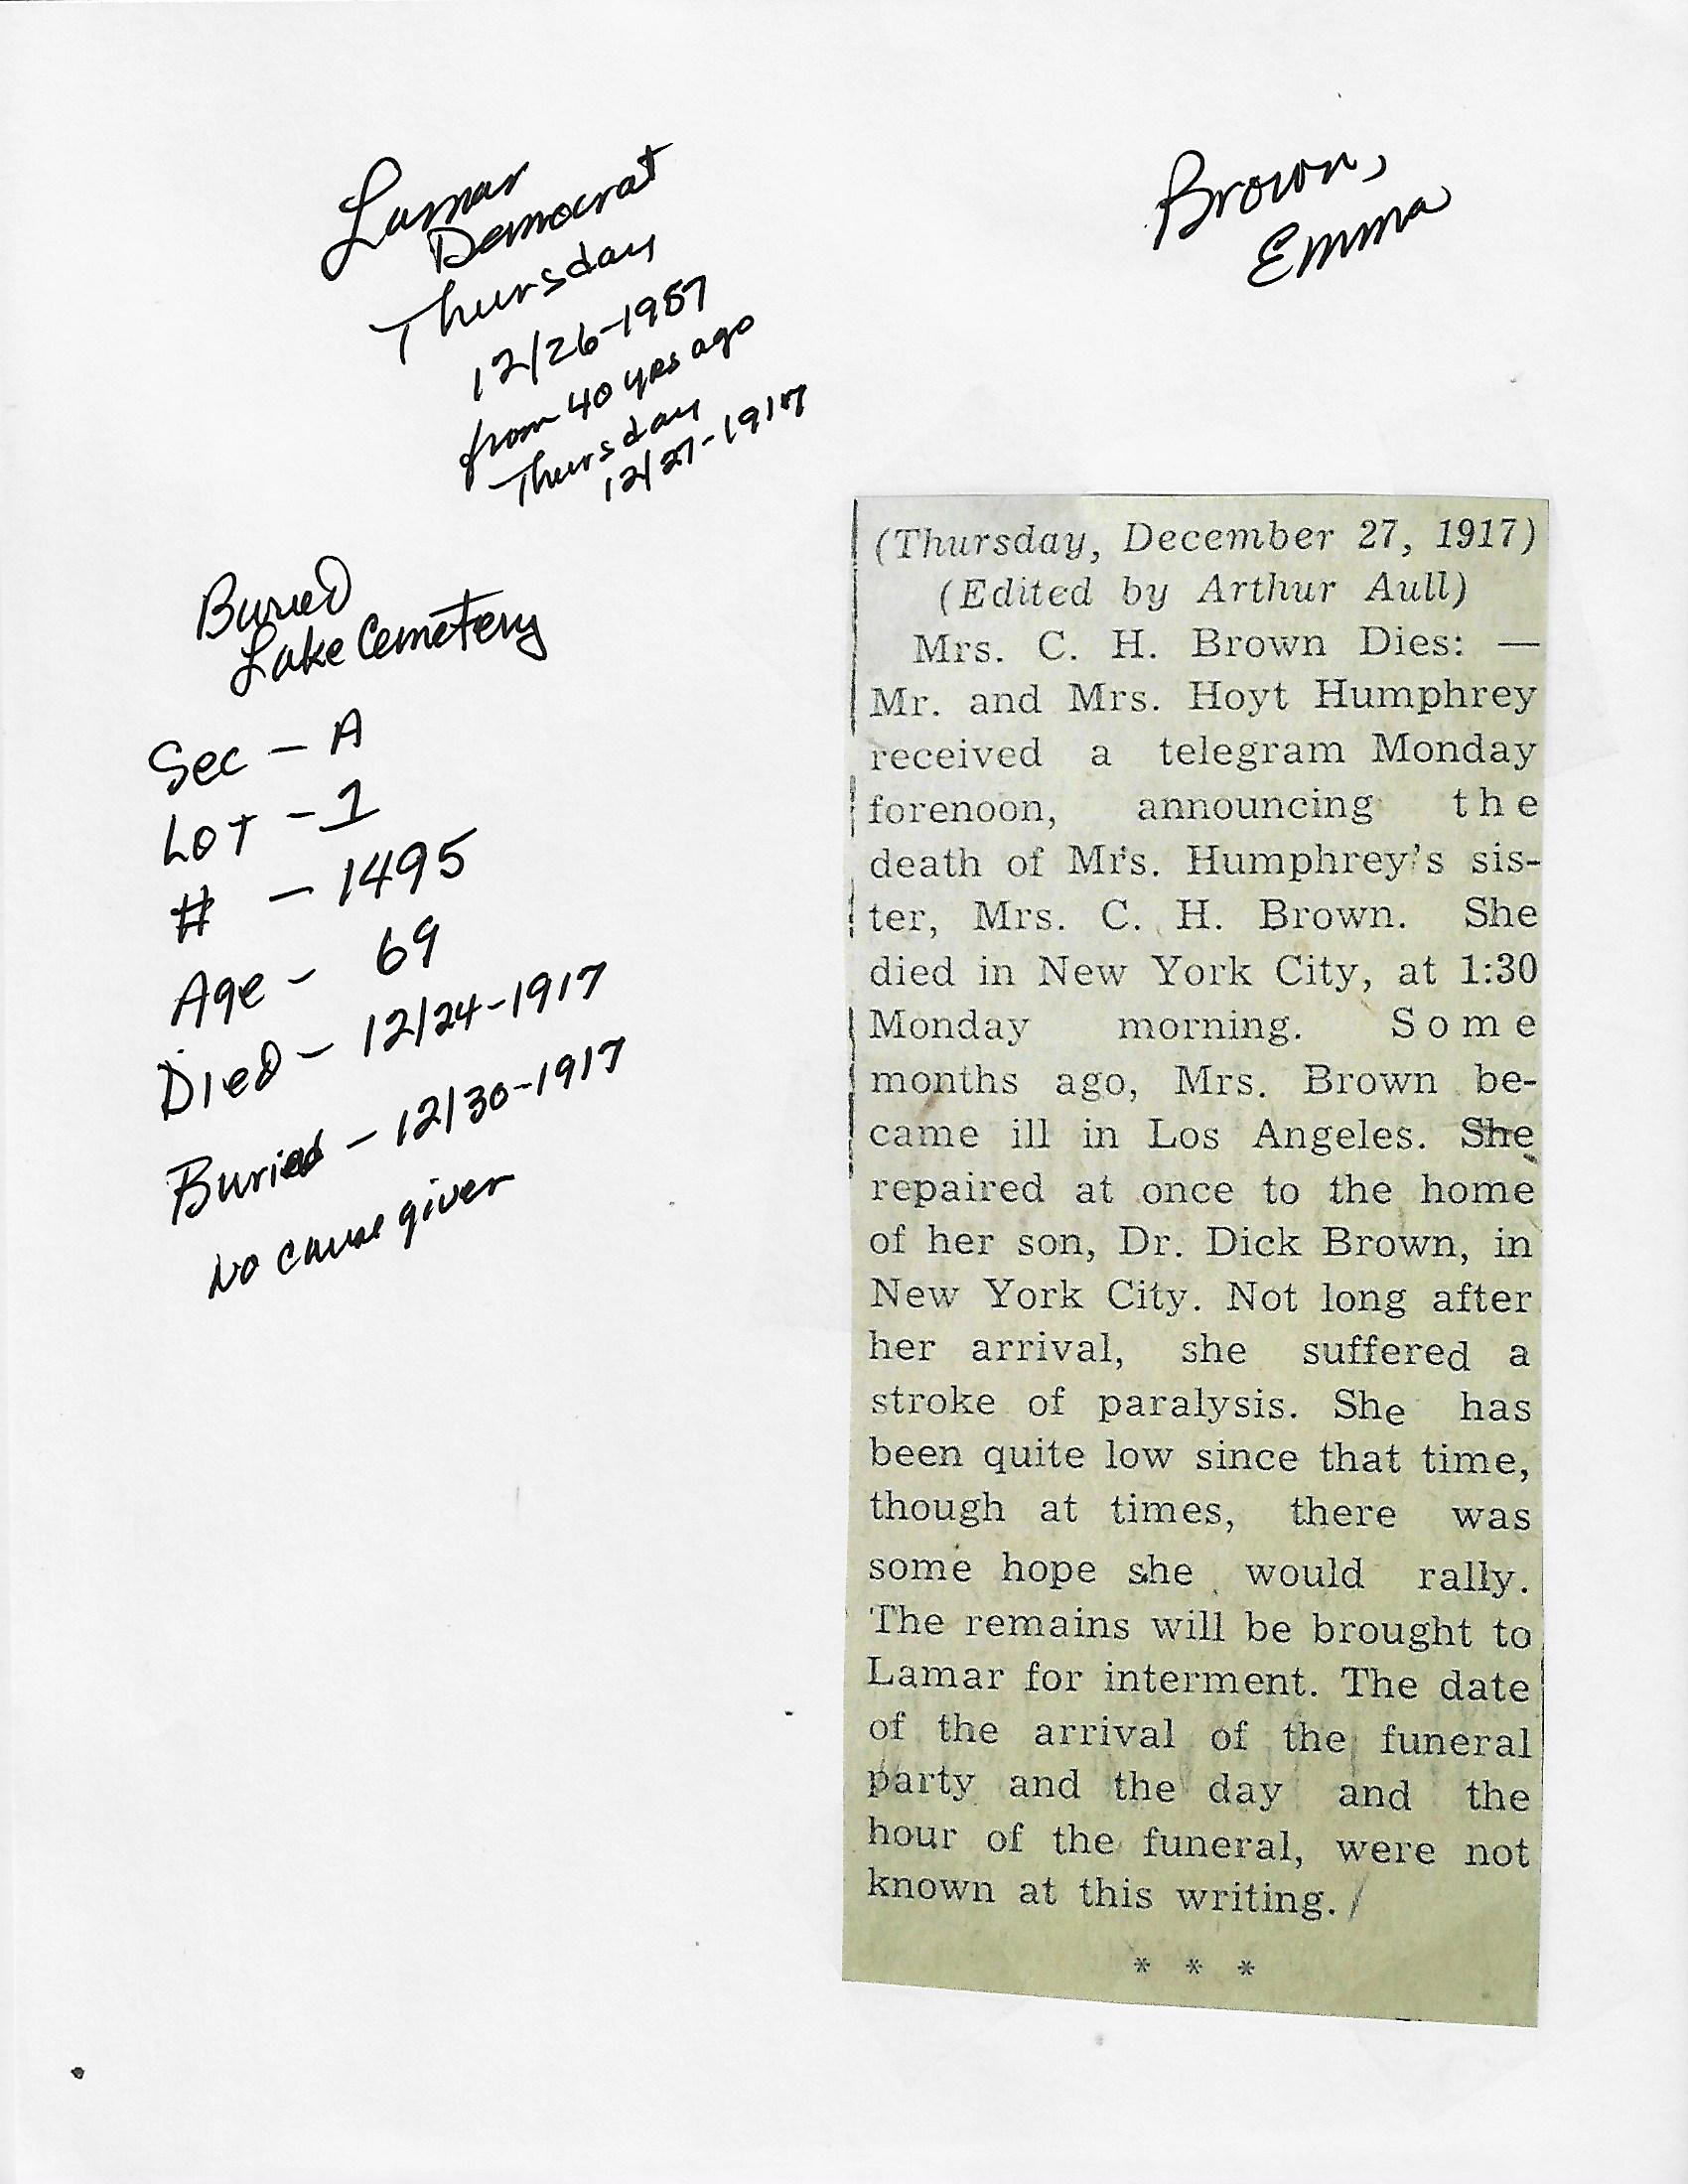 Lamar
Democrat
Thursday
12/26-1957
from 40 yrs ago
Thursday
12/27-1917
Brown,
Emma
Buried
Lake Cemetery
Sec - A
Lot - 1
# - 1495
Age - 69
Died - 12/24-1917
Buried - 12/30-1917
No cause given
(Thursday, December 27, 1917)
(Edited by Arthur Aull)
Mrs. C. H. Brown Dies: —
Mr. and Mrs. Hoyt Humphrey
received a telegram Monday
forenoon, announcing the
death of Mrs. Humphrey's sis-
ter, Mrs. C. H. Brown. She
died in New York City, at 1:30
Monday morning. Some
months ago, Mrs. Brown be-
came ill in Los Angeles. She
repaired at once to the home
of her son, Dr. Dick Brown, in
New York City. Not long after
her arrival, she suffered a
stroke of paralysis. She has
been quite low since that time,
though at times, there was
some hope she would rally.
The remains will be brought to
Lamar for interment. The date
of the arrival of the funeral
party and the day and the
hour of the funeral, were not
known at this writing. /
* * *